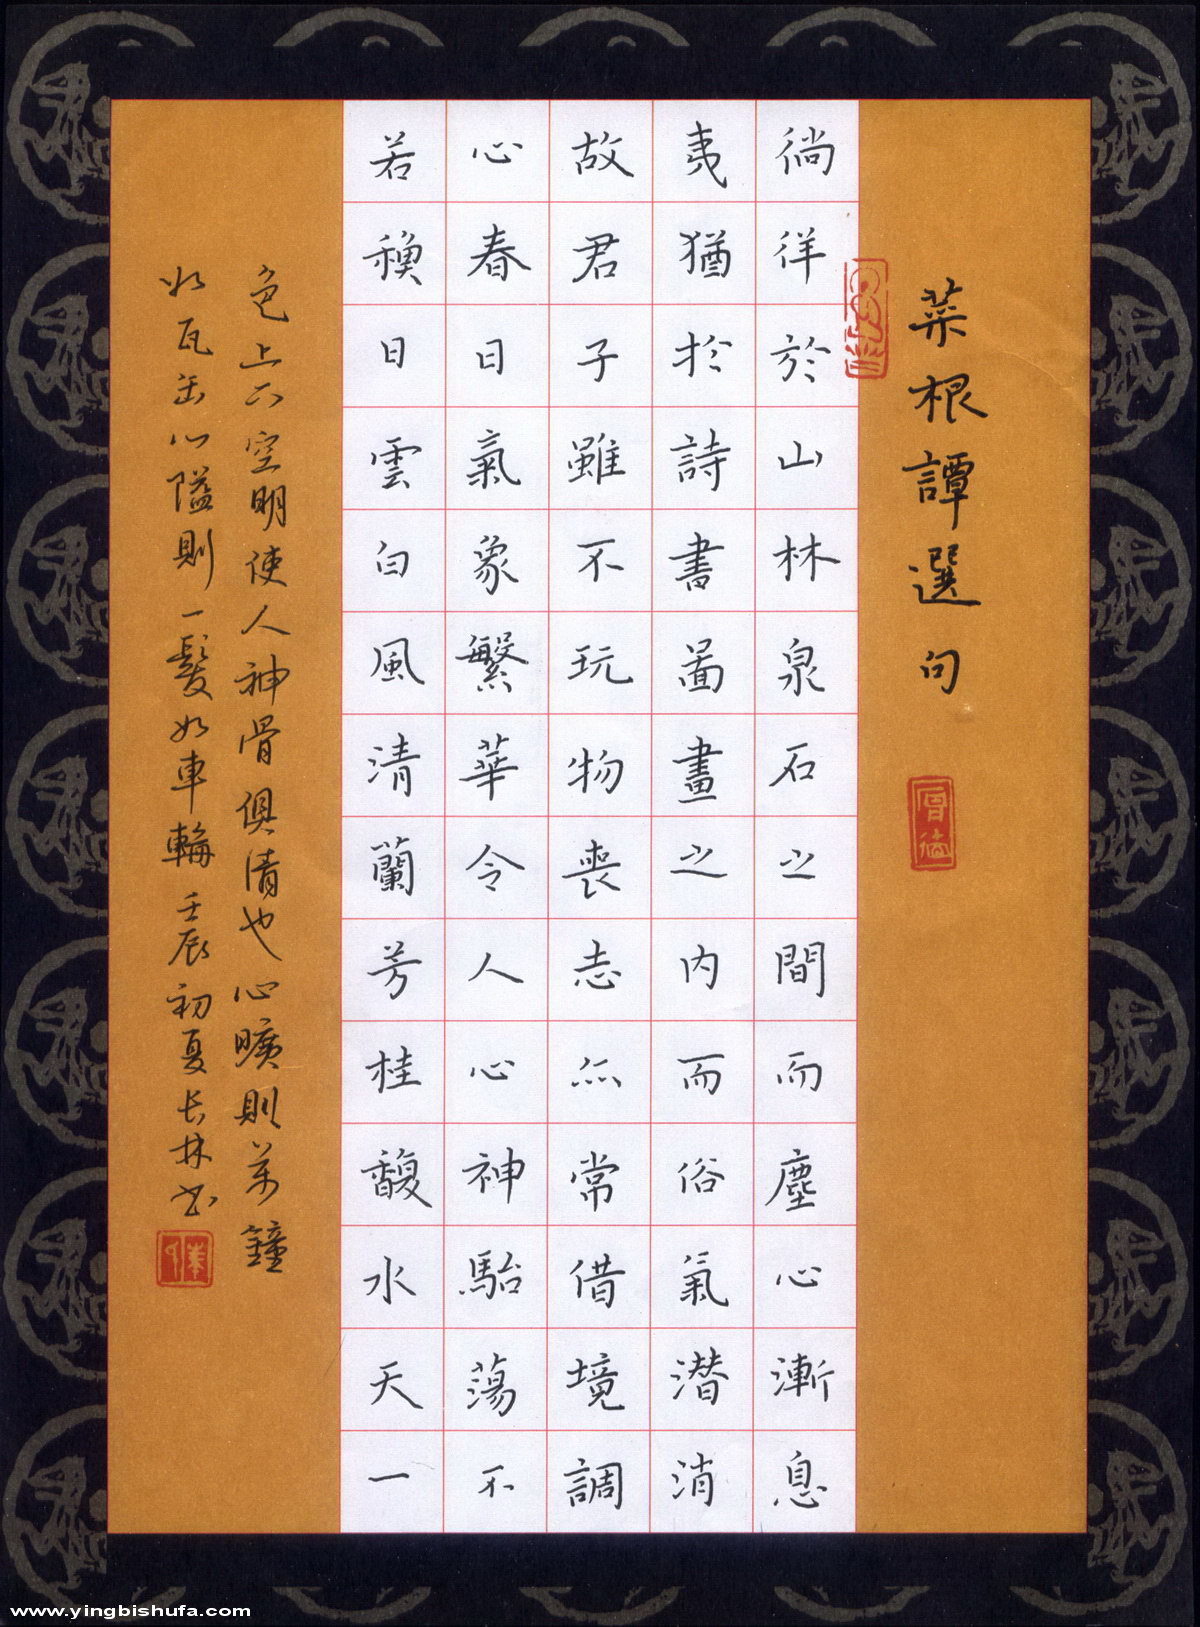 菜根譚選句
徜徉於山林泉石之間而塵心漸息
夷猶於詩書啚畫之内而俗氣潜消
故君子雖不玩物喪志亦常借境調
心春日氣象繁華令人心神駘蕩不
若秋日雲白風清蘭芳桂馥水天一
色上下空明使人神骨俱清也心曠則萬鐘
如瓦缶心隘則一髮如車輪 壬辰初夏长林书
www.yingbishufa.com